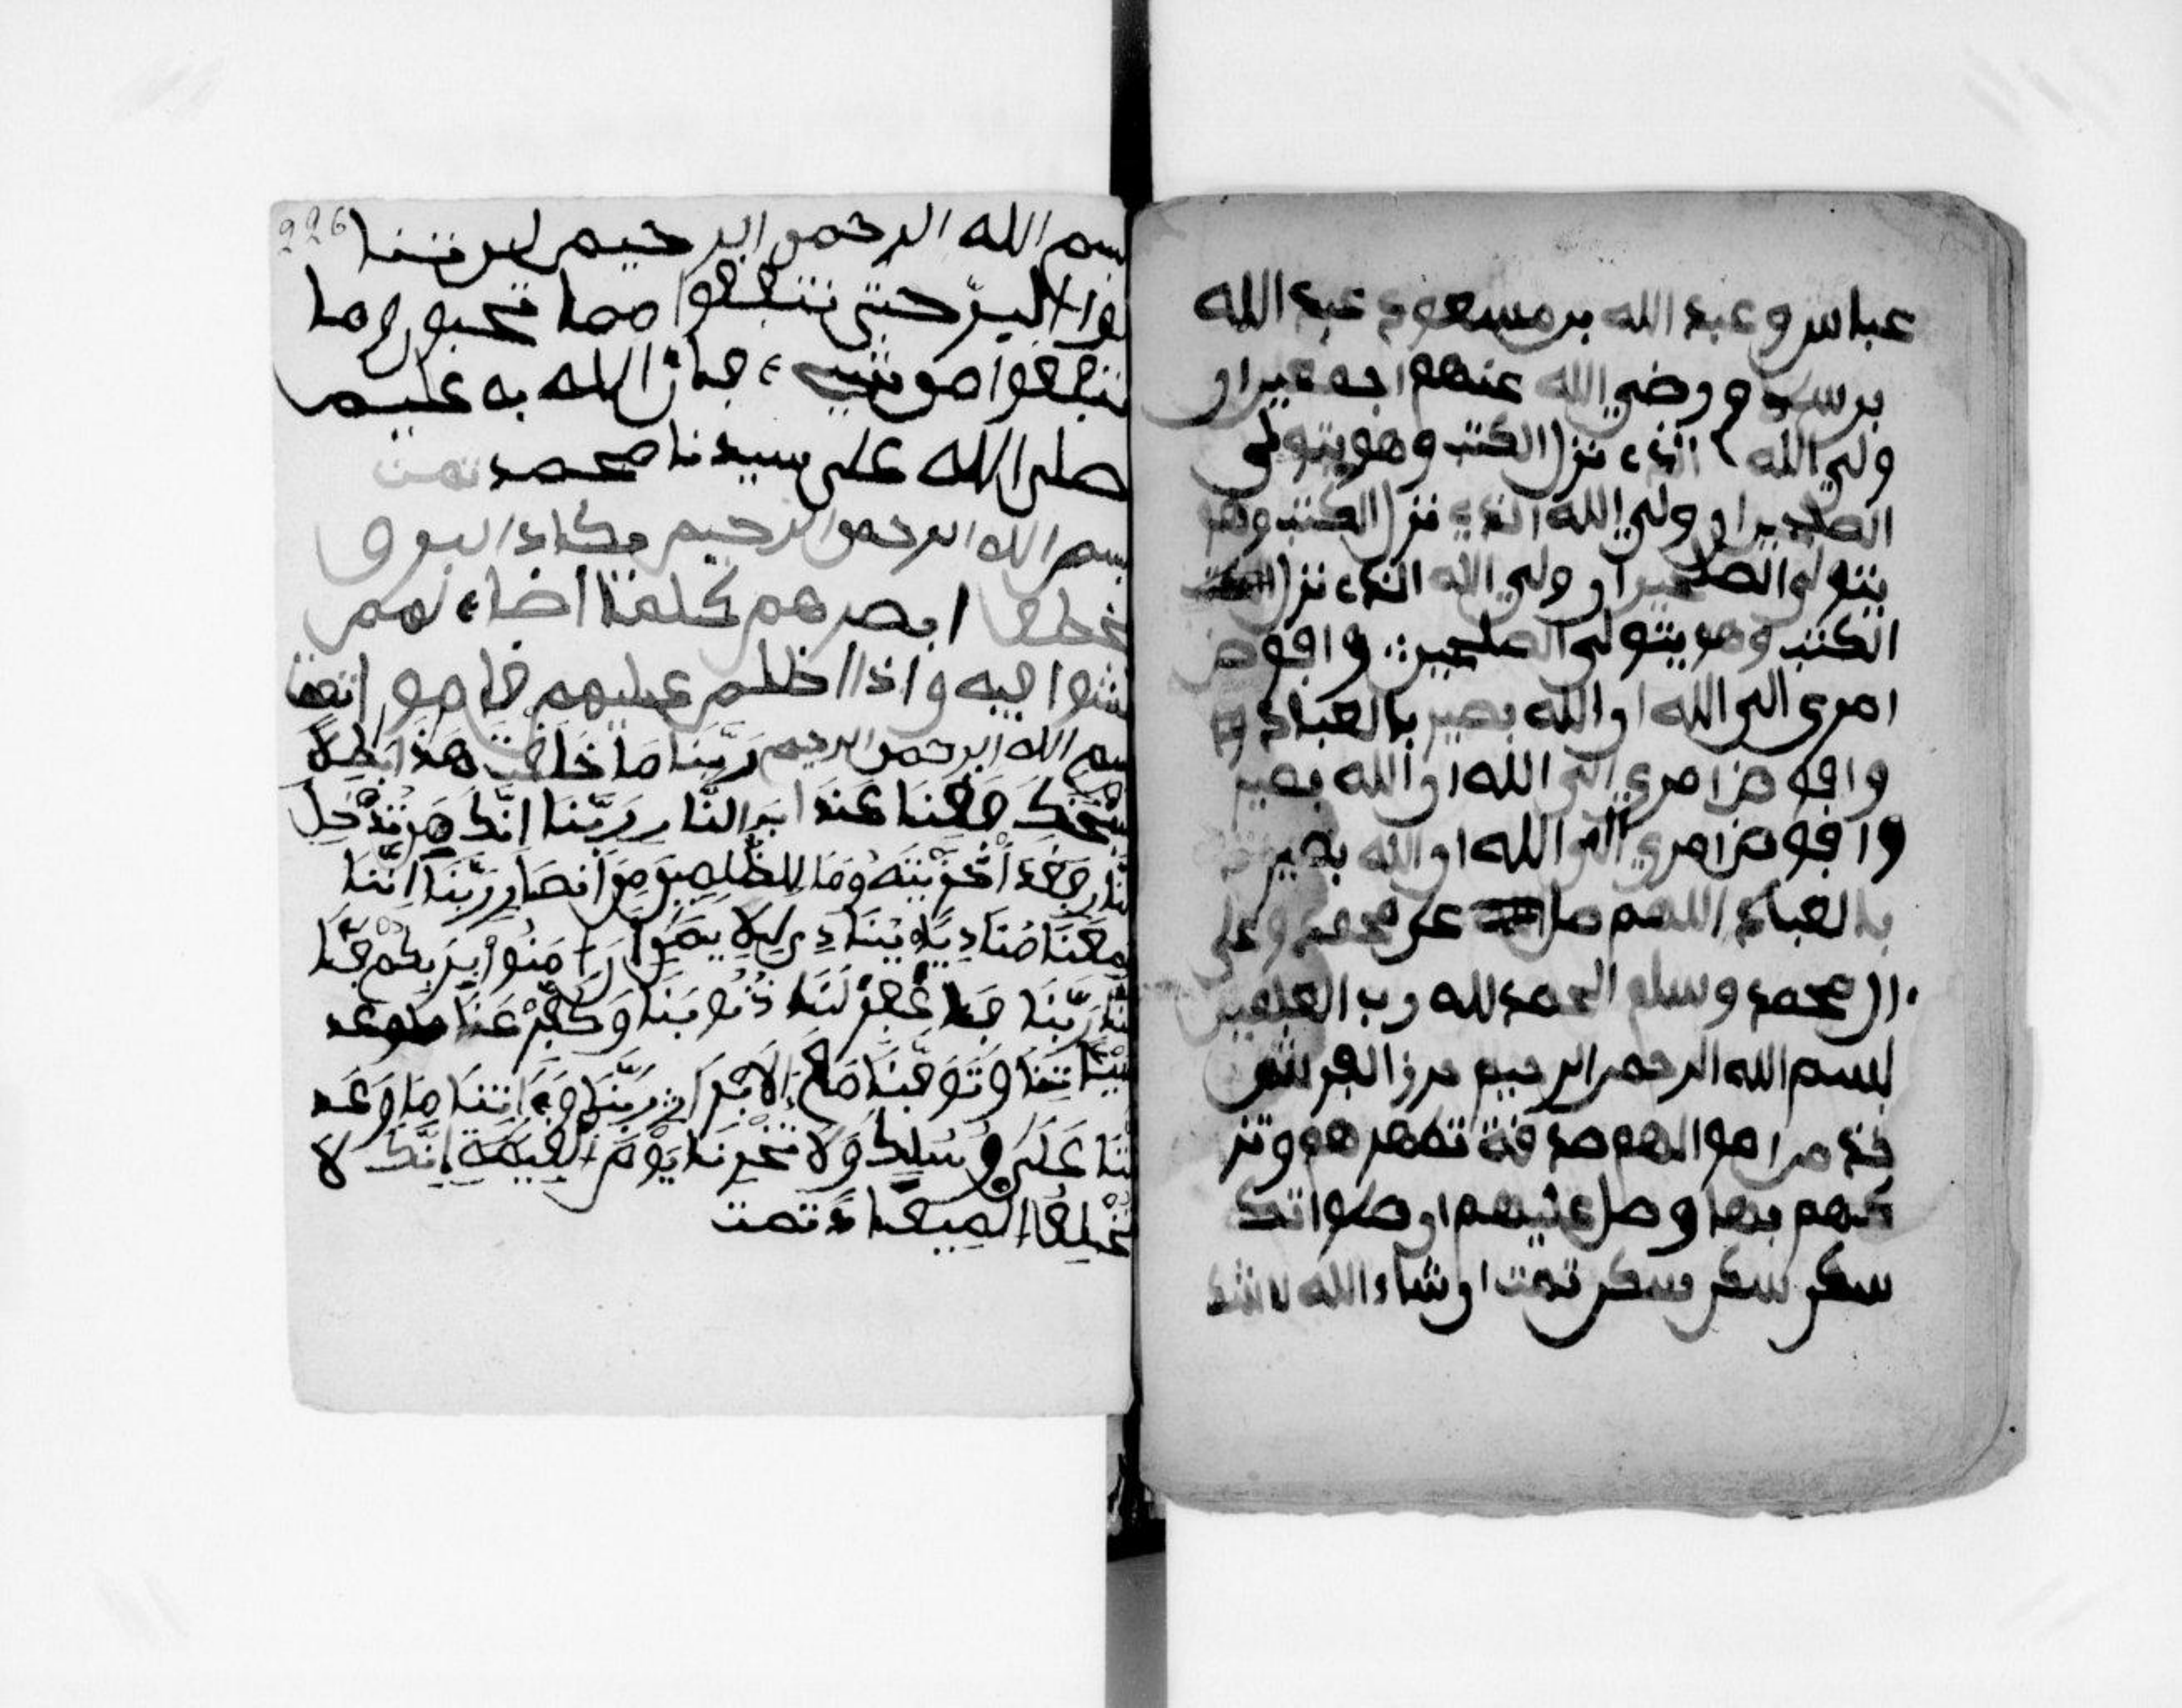 عباس وعبد الله بن مسعود عبد الله
بن سلام ورضي الله عنهم اجمعين ان
ولي الله الذي نزل الكتب وهو يتولى
الصلحين ان ولي الله الذي نزل الكتب وهو
يتولى الصلحين ان ولي الله الذي نزل
الكتب وهو يتولى الصلحين وافوض
امري الى الله ان الله بصير بالعباد
وافوض امري الى الله ان الله بصير
وافوض امري الى الله ان الله بصير
بالعباد اللهم صل على محمد وعلى
ال محمد وسلم الحمد لله رب العلمين
بسم الله الرحمن الرحيم
خذ من اموالهم صدقة تطهرهم وتز
كيهم بها وصل عليهم ان صلواتك
سكن سكن سكن تمت ان شاء الله
226
بسم الله الرحمن الرحيم لن تنا
لوا البر حتى تنفقوا مما تحبون وما
تنفقوا من شيء فان الله به عليم
صلى الله على سيدنا محمد تمت
بسم الله الرحمن الرحيم يكاد البرق
يخطف ابصرهم كلما اضاء لهم
مشوا فيه واذا اظلم عليهم قاموا
بسم الله الرحمن الرحيم رَبَّنَا مَا خَلَقْتَ هَذَا بَطِلًا
سُبْحَنَكَ فَقِنَا عَذَابَ النَّارِ رَبَّنَا إِنَّكَ مَن تُدْخِلِ
النَّارَ فَقَدْ أَخْزَيْتَهُ وَمَا لِلظَّلِمِينَ مِنْ أَنصَارٍ رَبَّنَا إِنَّنَا
سَمِعْنَا مُنَادِيًا يُنَادِي لِلِايمَنِ أَنْ ءَامِنُوا بِرَبِّكُمْ فَـَٔا
مَنَّا رَبَّنَا فَاغْفِرْ لَنَا ذُنُوبَنَا وَكَفِّرْ عَنَّا
سَيِّـَٔاتِنَا وَتَوَفَّنَا مَعَ الَابْرَارِ رَبَّنَا وَءَاتِنَا مَا وَعَد
تَّنَا عَلَى رُسُلِكَ وَلَا تُخْزِنَا يَوْمَ الْقِيَمَةِ إِنَّكَ لَا
تُخْلِفُ الْمِيعَادَ تمت